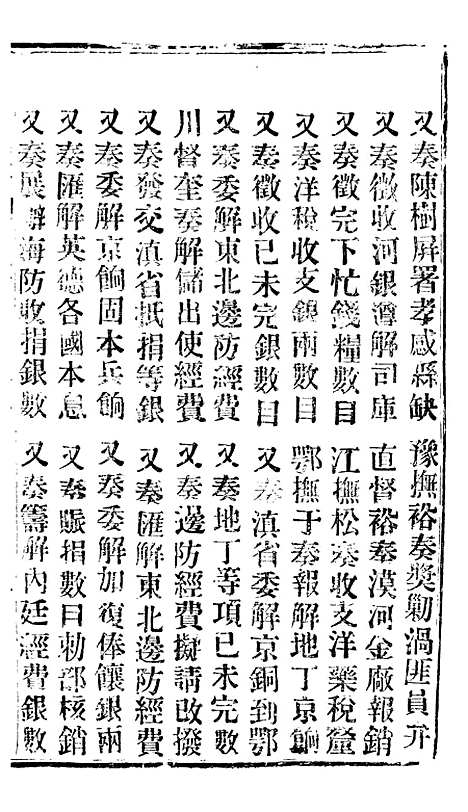 又奏陳樹屏署孝感縣缺　豫撫裕奏獎勦渦匪員弁
又奏徵收河銀澮解司庫　直督裕奏漠河金廠報銷
又奏徵完下忙錢糧數目　江撫松奏收支洋藥稅釐
又奏洋稅收支銀兩數目　鄂撫于奏報解地丁京餉
又奏徵收已未完銀數目　又奏滇省委解京銅到鄂
又奏委解東北邊防經費　又奏地丁等項已未完數
川督奎奏解儲出使經費　又奏邊防經費擬請改撥
又奏發交滇省抵捐等銀　又奏匯解東北邊防經費
又奏委解京餉固本兵餉　又奏委解加復俸饟銀兩
又奏匯解英德各國本息　又奏賑捐數目勅部核銷
又奏展辦海防收捐銀數　又奏籌解內廷經費銀數